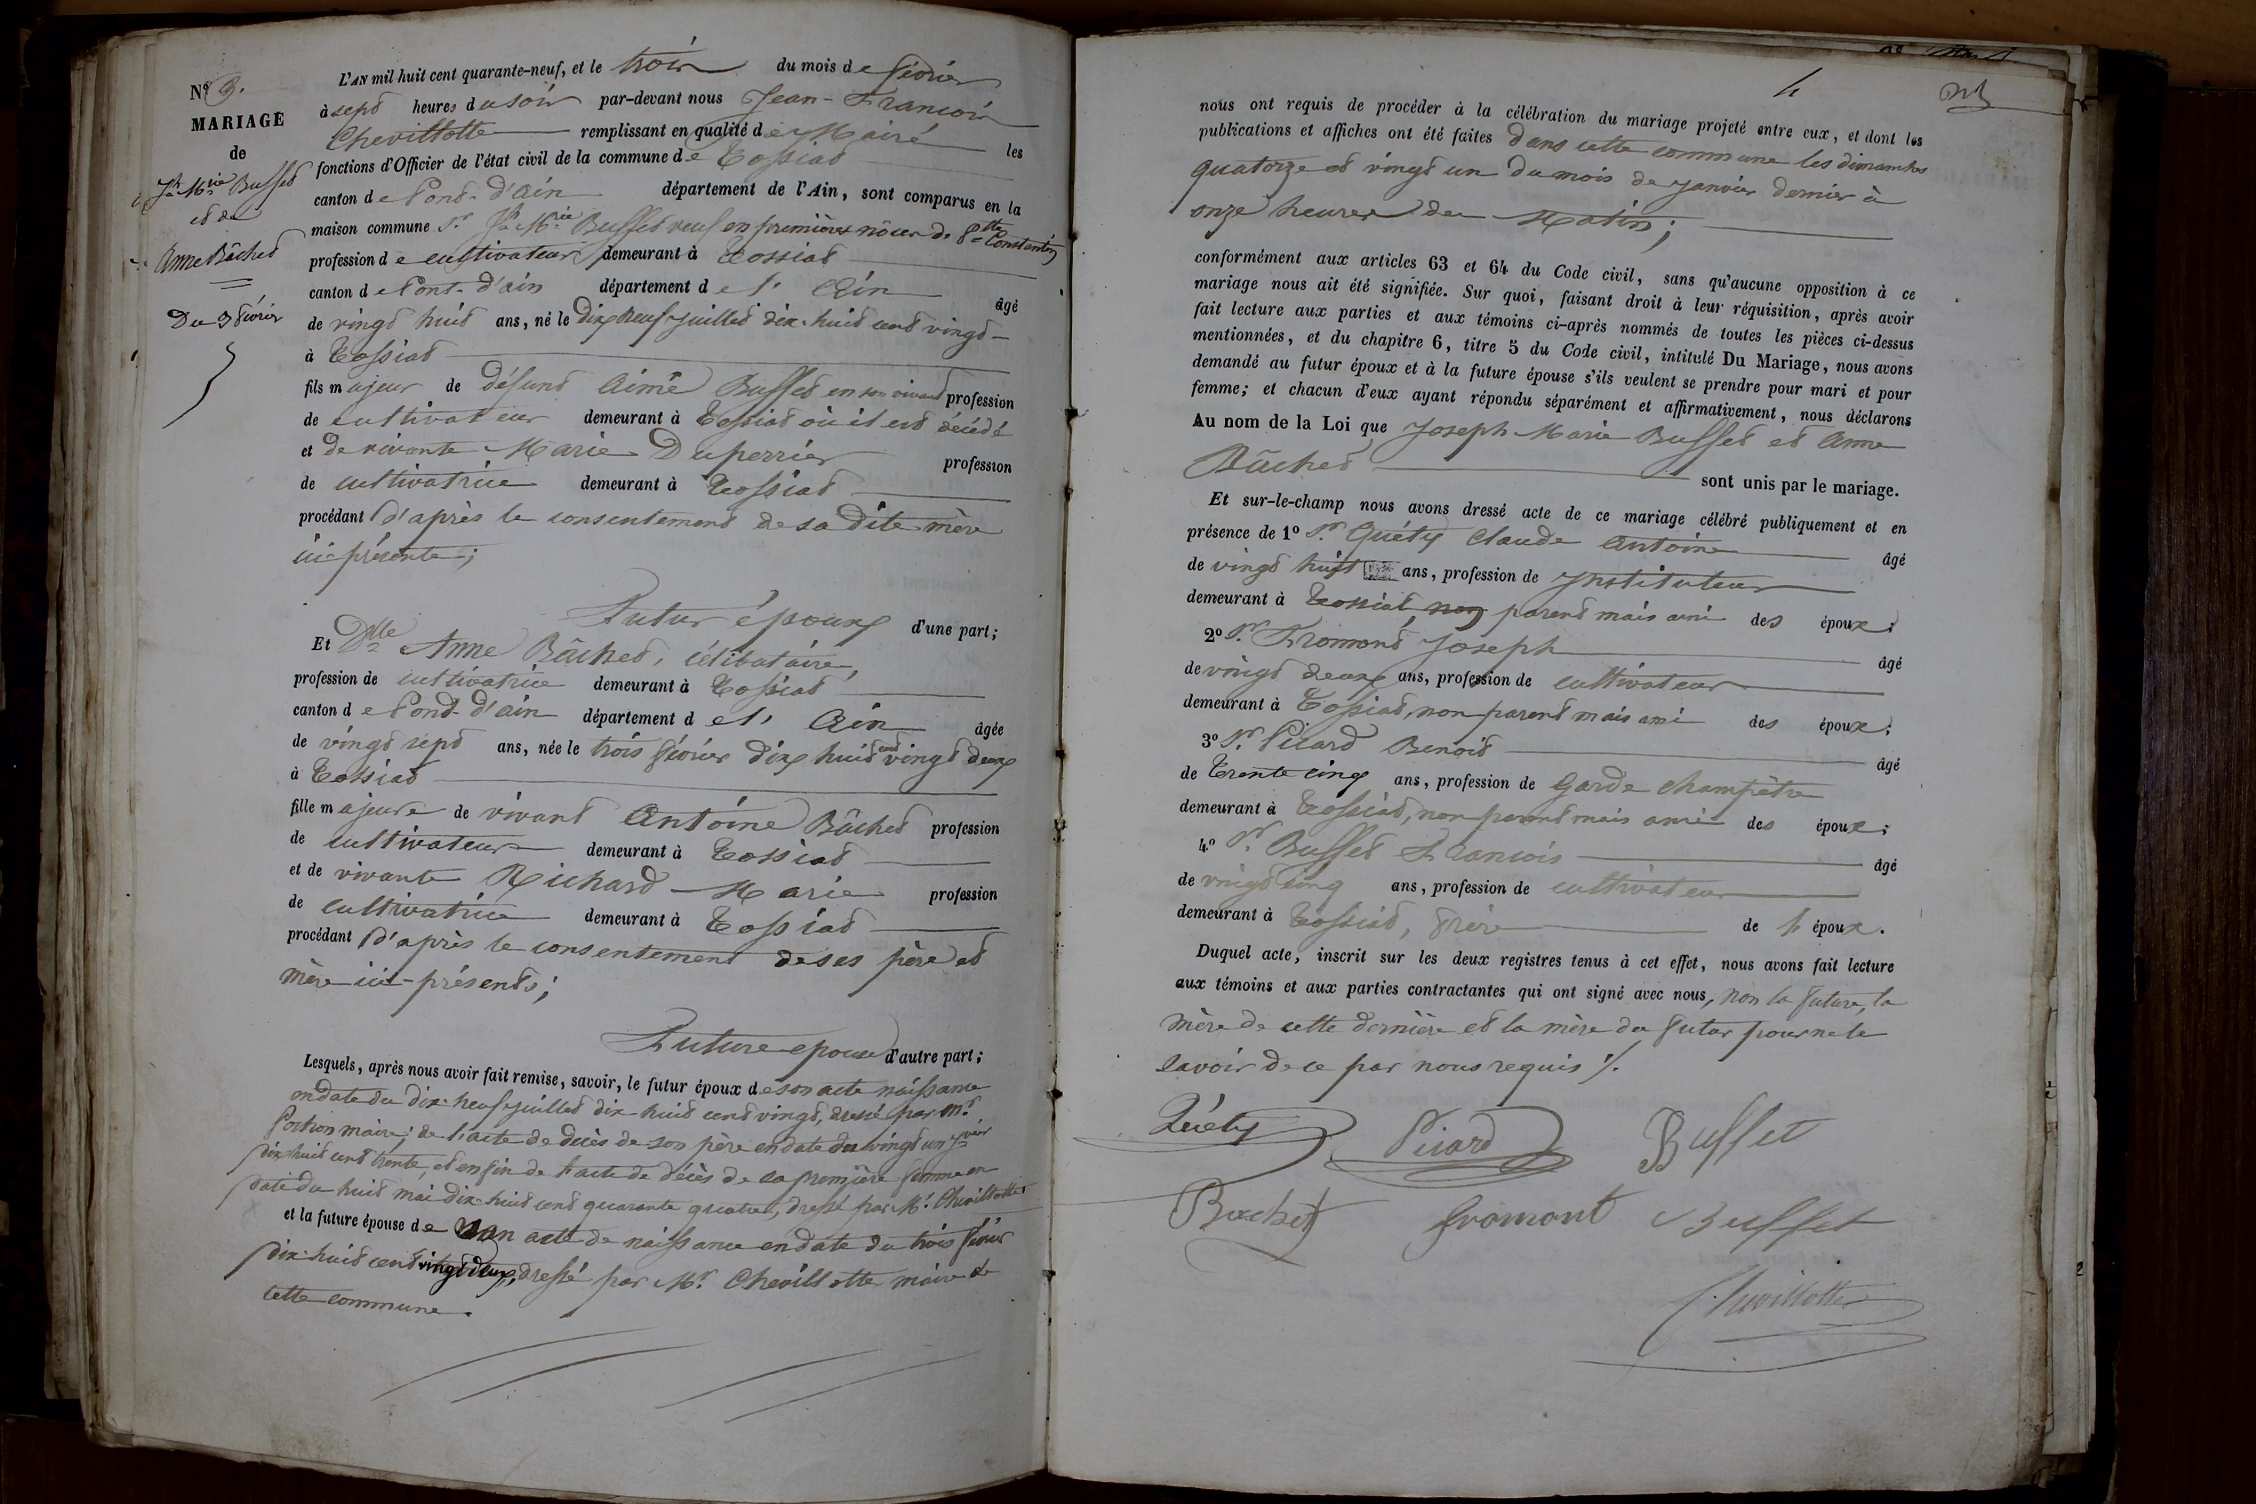 Nº 3.
MARIAGE
de
Jh Mrie Buffet
et de
Anne Bâchet
Du 3 février
L'AN mil huit cent quarante-neuf, et le trois du mois de février
à sept heures du soir par-devant nous Jean-François
Chevillotte remplissant en qualité de Maire les
fonctions d'Officier de l'état civil de la commune de Tossiat
canton de Pont-d'ain département de l'Ain, sont comparus en la
maison commune Sr. Jh Mie Buffet veuf en premières nôces de Constantin
profession de cultivateur demeurant à Tossiat
canton de Pont-d'ain département de l'Ain âgé
de vingt huit ans, né le dix neuf juillet dix-huit cent vingt
à Tossiat
fils majeur de défunt Aimé Buffet en son vivant profession
de cultivateur demeurant à Tossiat où il est décédé
et de vivante Marie Duperrier profession
de cultivatrice demeurant à Tossiat
procédant d'après le consentement de sa dite mère
ici présente;
Futur époux d'une part;
Et Dlle Anne Bâchet, célibataire,
profession de cultivatrice demeurant à Tossiat
canton de Pont-d'ain département de l'Ain âgée
de vingt sept ans, née le trois février dix huit cent vingt deux
à Tossiat
fille majeure de vivant Antoine Bâchet profession
de cultivateur demeurant à Tossiat
et de vivante Richard Marie profession
de cultivatrice demeurant à Tossiat
procédant d'après le consentement de ses père et
mère ici-présents;
Future epouse d'autre part;
Lesquels, après nous avoir fait remise, savoir, le futur époux de son acte naissance
en date du dix-neuf juillet dix huit cent vingt, dressé par Mr.
maire; de l'acte de décès de son père en date du vingt un
dix huit cent trente, et enfin de l'acte de décès de sa première femme en
date du huit mai dix-huit cent quarante quatre, dressé par Mr. Chevillotte
et la future épouse de son acte de naissance en date du trois févier
dix-huit cent vingt deux, dressé par Mr. Chevillotte maire de
cette commune.
4
nous ont requis de procéder à la célébration du mariage projeté entre eux, et dont les
publications et affiches ont été faites dans cette commune les dimanches
quatorze et vingt un du mois de janvier dernier à
onze heures du Matin;
conformément aux articles 63 et 64 du Code civil, sans qu'aucune opposition à ce
mariage nous ait été signifiée. Sur quoi, faisant droit à leur réquisition, après avoir
fait lecture aux parties et aux témoins ci-après nommés de toutes les pièces ci-dessus
mentionnées, et du chapitre 6, titre 5 du Code civil, intitulé Du Mariage, nous avons
demandé au futur époux et à la future épouse s'ils veulent se prendre pour mari et pour
femme; et chacun d'eux ayant répondu séparément et affirmativement, nous déclarons
Au nom de la Loi que Joseph Marie Buffet et Anne
Bâchet sont unis par le mariage.
Et sur-le-champ nous avons dressé acte de ce mariage célébré publiquement et en
présence de 1º Sr. Quéty Claude Antoine âgé
de vingt huit ans, profession de Instituteur
demeurant à Tossiat, non parent mais ami des époux;
2º Sr. Fromont Joseph âgé
de vingt deux ans, profession de cultivateur
demeurant à Tossiat, non parent mais ami des époux;
3º Sr. Picard Benoit âgé
de trente cinq ans, profession de Garde champêtre
demeurant à Tossiat, non parent mais ami des époux;
4º Sr. Buffet François âgé
de vingt cinq ans, profession de cultivateur
demeurant à Tossiat, frère de l'époux.
Duquel acte, inscrit sur les deux registres tenus à cet effet, nous avons fait lecture
aux témoins et aux parties contractantes qui ont signé avec nous, non la future, la
mère de cette dernière et la mère du futur pour ne le
savoir de ce par nous requis ./.
Quéty Picard Buffet
Bachet fromont Buffet
Chevillotte